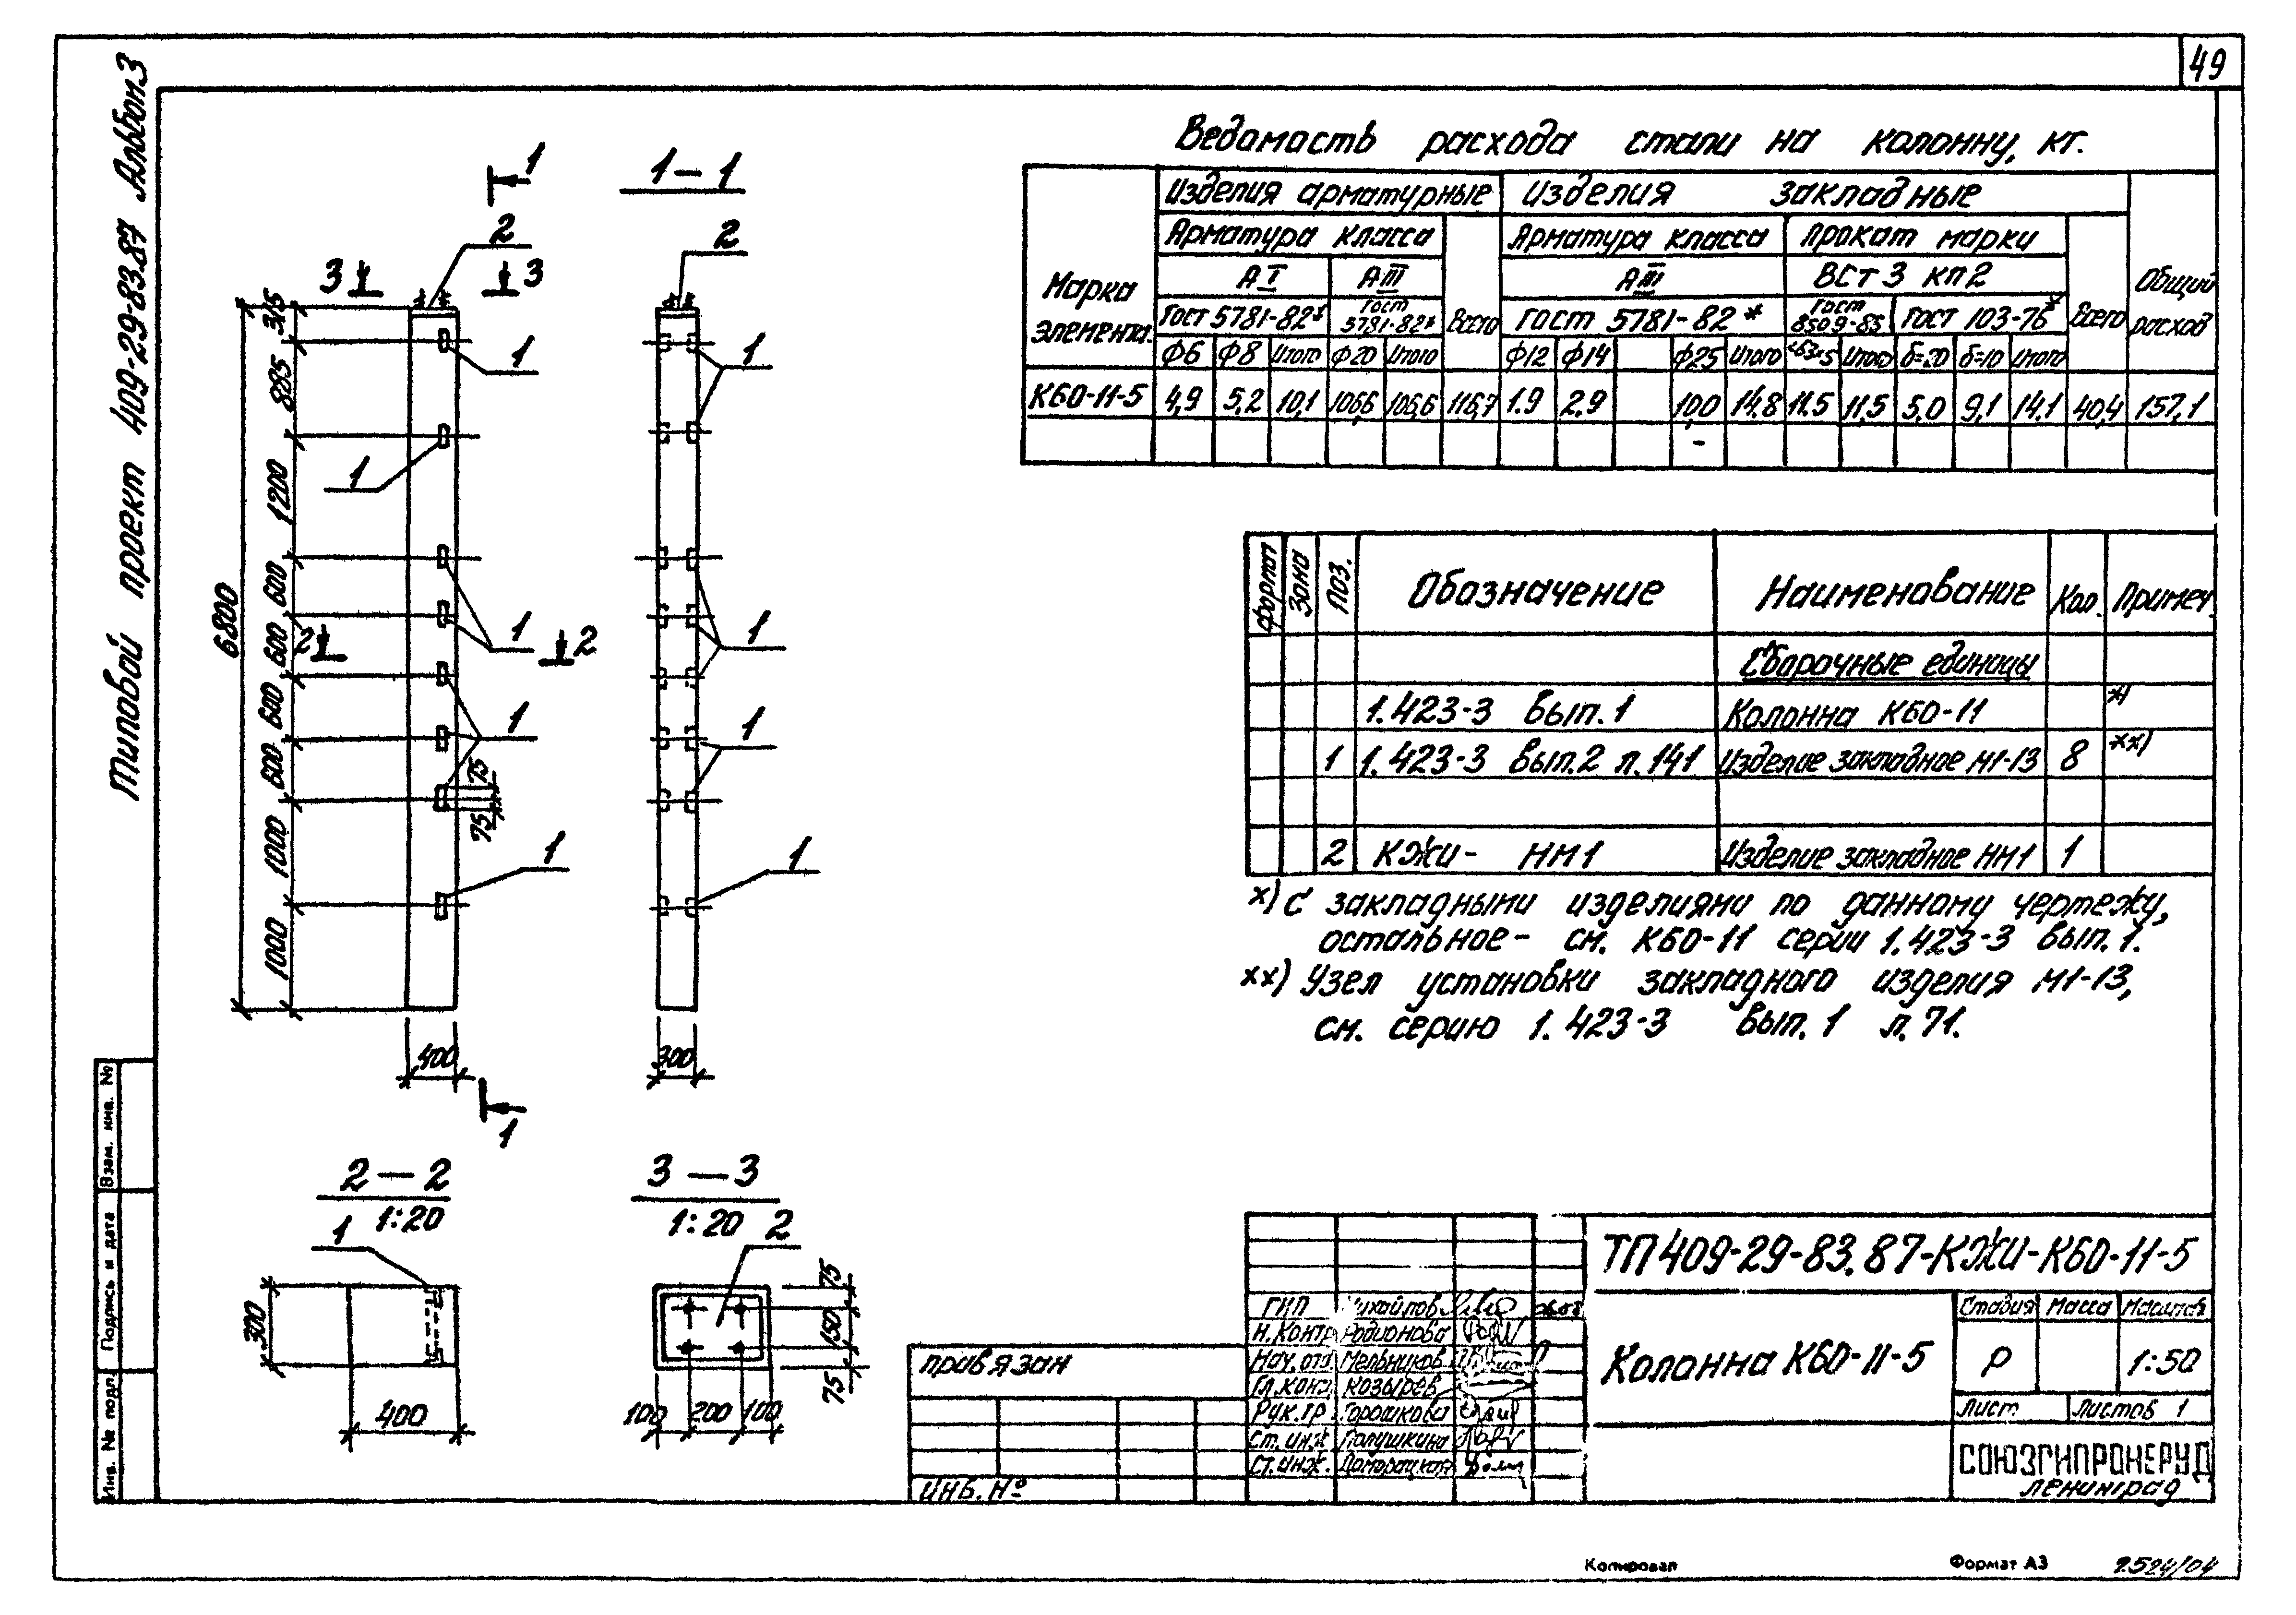 49
Типовой проект 409-29-83.87 Альбом 3
Ведомость расхода стали на колонну, кг.
Марка элемента
Изделия арматурные
Изделия закладные
Общий расход
Арматура класса
Всего
Арматура класса
Прокат марки
Всего
АI
АIII
АIII
ВСт3 кп2
Гост 5781-82*
Гост 5781-82*
Гост 5781-82*
Гост 8509-85
Гост 103-76*
Ф6 Ф8 Итого Ф20 Итого Ф12 Ф14 Ф25 Итого Итого δ=20 δ=10 Итого
К60-11-5 4,9 5,2 10,1 106,6 106,6 116,7 1.9 2.9 10,0 14.8 11.5 11,5 5,0 9,1 14.1 40,4 157,1
1
1-1
2
2
3
3
1
1
1
1
1
1
1
1
1
2
2
1
315
885
1200
600
600
600
600
1000
1000
6800
75
75
400
300
1
Формат Зона Поз. Обозначение Наименование Кол. Примеч.
Сборочные единицы
1.423-3 вып.1 Колонна К60-11 х)
1 1.423-3 вып.2 л.141 Изделие закладное М1-13 8 хх)
2 КЖИ- НМ1 Изделие закладное НМ1 1
х) С закладными изделиями по данному чертежу,
остальное - см. К60-11 серии 1.423-3 вып.1.
хх) Узел установки закладного изделия М1-13,
см. серию 1.423-3 вып.1 л.71.
2-2
1:20
1
300
400
3-3
1:20
2
75
150
75
100 200 100
Взам. инв. №
Подпись и дата
Инв. № подл.
Привязан
Инв. №
ГИП Михайлов
Н.Контр Родионова
Нач.отд Мельников
Гл.конс Козырев
Рук.гр. Горошкова
Ст.инж Полушкина
Ст.инж. Доморацкая
ТП 409-29-83.87-КЖИ-К60-11-5
Колонна К60-11-5
Стадия Масса Масштаб
Р 1:50
Лист Листов 1
СОЮЗГИПРОНЕРУД
Ленинград
Копировал
Формат А3
2524/04